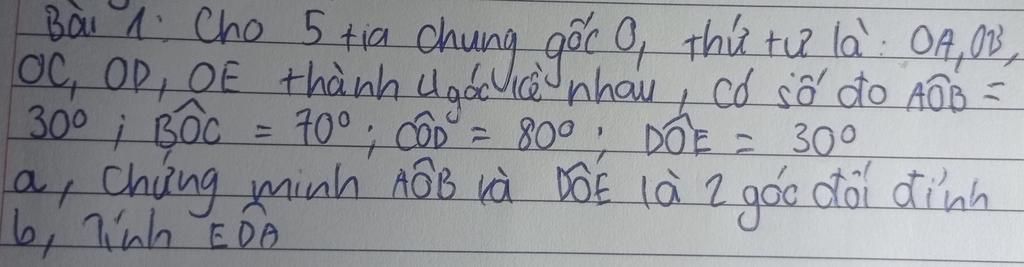 Bài 1: Cho 5 tia chung gốc O, thứ tự là: OA, OB,
OC, OD, OE thành 4 góc kề nhau, có số đo AÔB =
30°; BÔC = 70°; CÔD = 80°; DÔE = 30°
a, Chứng minh AÔB và DÔE là 2 góc đối đỉnh
b, Tính EÔA